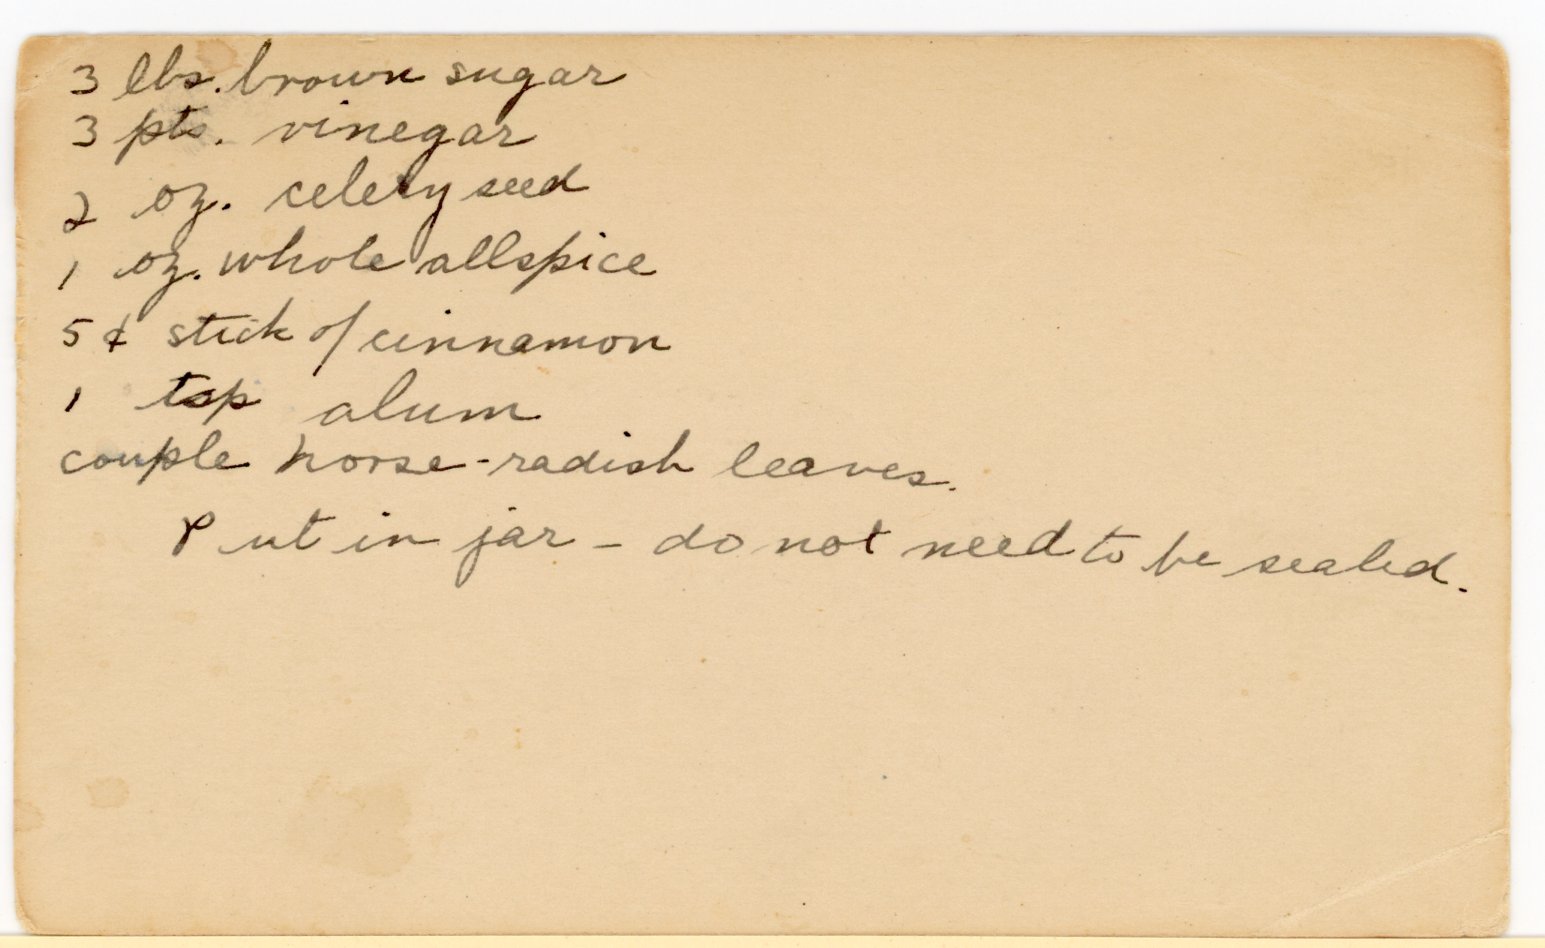 3 lbs. brown sugar
3 pts. vinegar
2 oz. celery seed
1 oz. whole allspice
5 ¢ stick of cinnamon
1 tsp alum
couple horse-radish leaves.
Put in jar - do not need to be sealed.